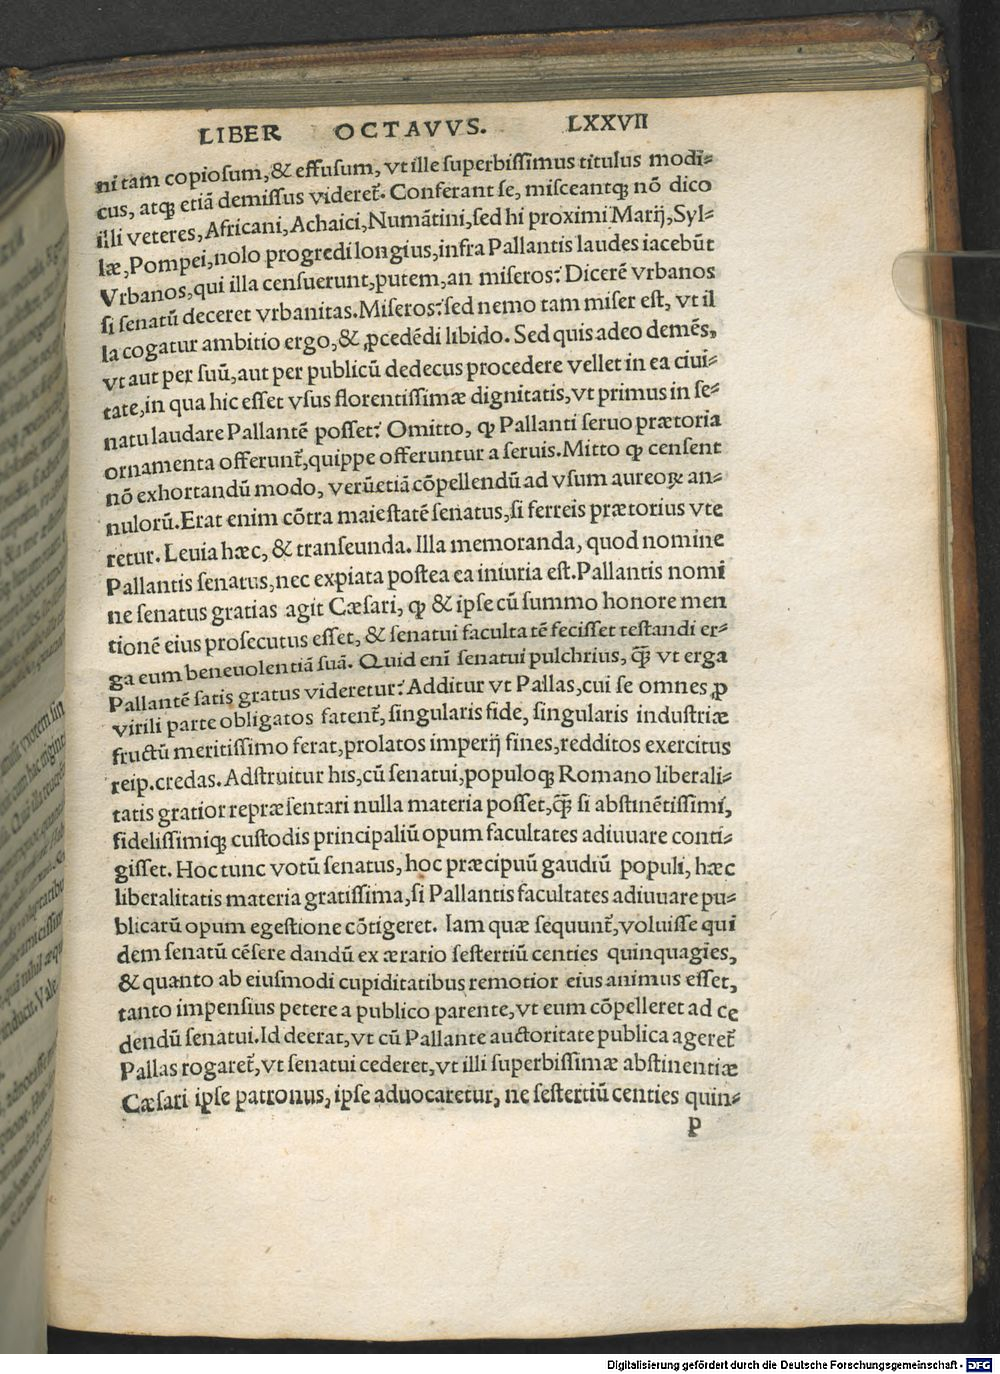 LIBER OCTAVVS. LXXVII
ni tam copiosum,& effusum, vt ille superbissimus titulus modi-
cus, atqꝫ etiā demissus videret᷑. Conferant se, misceantqꝫ nō dico
illi veteres, Africani, Achaici, Numātini, sed hi proximi Marij, Syl-
læ, Pompei, nolo progredi longius, infra Pallantis laudes iacebūt
Vrbanos, qui illa censuerunt, putem, an miseros? Dicerē vrbanos
si senatū deceret vrbanitas. Miseros? sed nemo tam miser est, vt il
la cogatur ambitio ergo, & ꝓcedēdi libido. Sed quis adeo demēs,
vt aut per suū, aut per publicū dedecus procedere vellet in ea ciui-
tate, in qua hic esset vsus florentissimæ dignitatis, vt primus in se-
natu laudare Pallantē posset? Omitto, ꝙ Pallanti seruo prætoria
ornamenta offerunt᷑, quippe offeruntur a seruis. Mitto ꝙ censent
nō exhortandū modo, verū etiā cōpellendū ad vsum aureoꝝ an-
nulorū. Erat enim cōtra maiestatē senatus, si ferreis prætorius vte
retur. Leuia hæc, & transeunda. Illa memoranda, quod nomine
Pallantis senatus, nec expiata postea ea iniuria est. Pallantis nomi
ne senatus gratias agit Cæsari, ꝙ & ipse cū summo honore men
tionē eius prosecutus esset, & senatui facultatē fecisset testandi er-
ga eum beneuolentiā suā. Quid enī senatui pulchrius, q̄ꝫ vt erga
Pallantē satis gratus videretur? Additur vt Pallas, cui se omnes ꝓ
virili parte obligatos fatent᷑, singularis fide, singularis industriæ
fructū meritissimo ferat, prolatos imperij fines, redditos exercitus
reip. credas. Adstruitur his, cū senatui, populoqꝫ Romano liberali-
tatis gratior repræsentari nulla materia posset, q̄ꝫ si abstinētissimi,
fidelissimiqꝫ custodis principaliū opum facultates adiuuare conti-
gisset. Hoc tunc votū senatus, hoc præcipuū gaudiū populi, hæc
liberalitatis materia gratissima, si Pallantis facultates adiuuare pu-
blicarū opum egestione cōtigeret. Iam quæ sequunt᷑, voluisse qui
dem senatū cēsere dandū ex ærario sestertiū centies quinquagies,
& quanto ab eiusmodi cupiditatibus remotior eius animus esset,
tanto impensius petere a publico parente, vt eum cōpelleret ad ce
dendū senatui. Id deerat, vt cū Pallante auctoritate publica ageret᷑
Pallas rogaret᷑, vt senatui cederet, vt illi superbissimæ abstinentiæ
Cæsari ipse patronus, ipse aduocaretur, ne sestertiū centies quin-
p
Digitalisierung gefördert durch die Deutsche Forschungsgemeinschaft - DFG